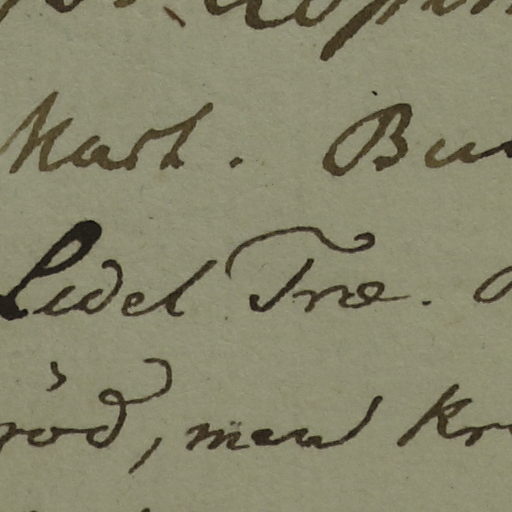 Mark. Bu
Lidet Træ.
röd, men Kr